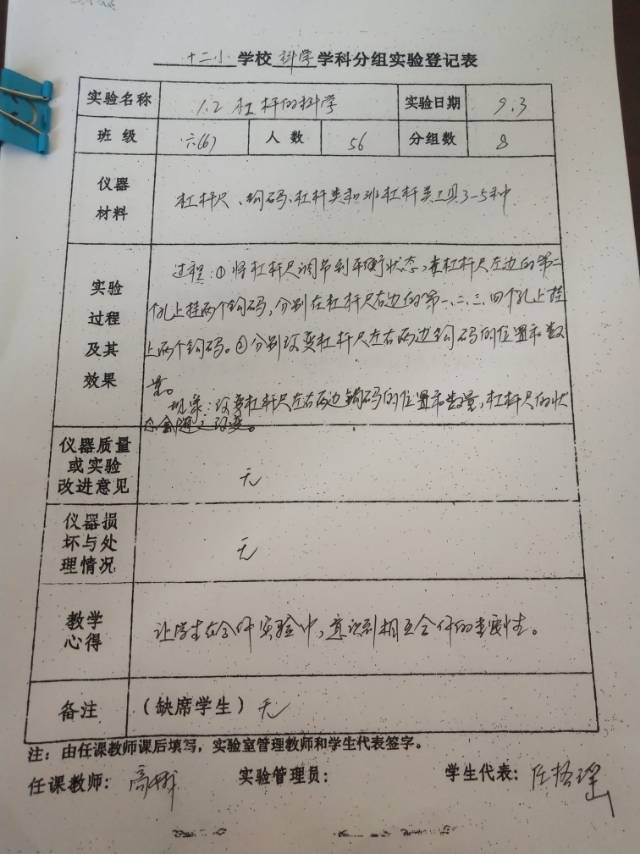 十二小学校科学学科分组实验登记表
实验名称 1.2 杠杆的科学 实验日期 9.3
班级 六(6) 人数 56 分组数 8
仪器材料 杠杆尺、钩码、杠杆类和非杠杆类工具3-5种
实验过程及其效果
过程:①将杠杆尺调节到平衡状态,在杠杆尺左边的第二
个孔上挂两个钩码,分别在杠杆尺右边的第一、二、三、四个孔上挂
上两个钩码。②分别改变杠杆尺左右两边钩码的位置和数
量。
现象:改变杠杆尺左右两边钩码的位置和数量,杠杆尺的状
态会随之改变。
仪器质量或实验改进意见 无
仪器损坏与处理情况 无
教学心得 让学生在合作实验中,意识到相互合作的重要性。
备注 (缺席学生) 无
注:由任课教师课后填写,实验室管理教师和学生代表签字。
任课教师:高 实验管理员: 学生代表: